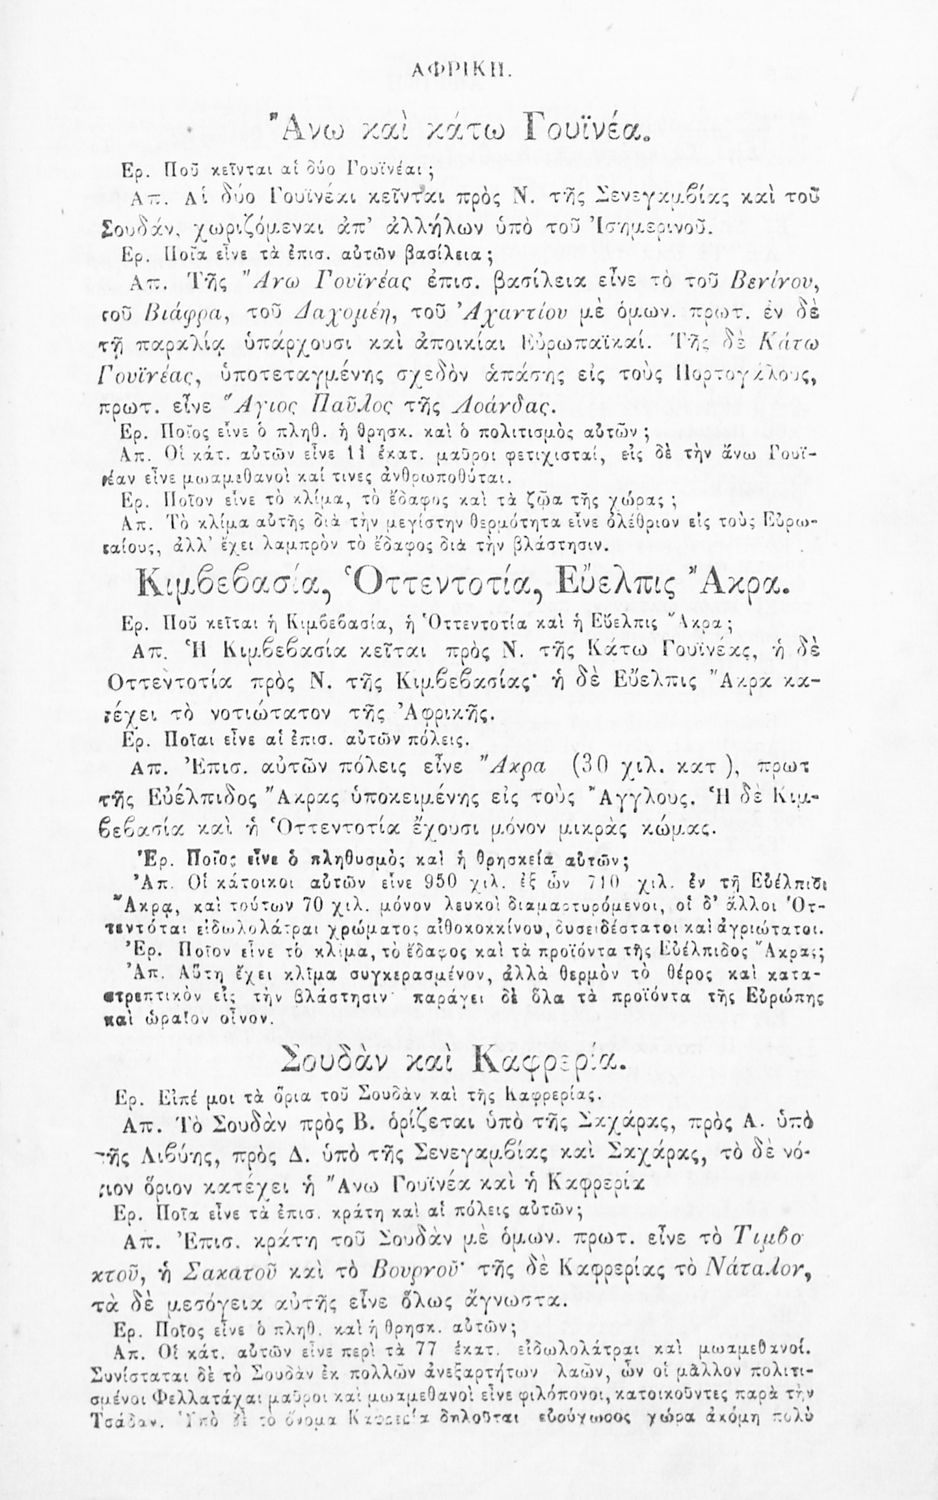 ΑΦΡΙΚΗ.
Ἄνω καὶ κάτω Γουϊνέα.
Ερ. Ποῦ κεῖνται αἱ δύο Γουϊνέαι ;
Απ. Αἱ δύο Γουϊνέαι κεῖνται πρὸς Ν. τῆς Σενεγαμβίας καὶ τοῦ
Σουδάν, χωριζόμεναι ἀπ’ ἀλλήλων ὑπὸ τοῦ Ἰσημερινοῦ.
Ερ. Ποῖα εἶνε τὰ ἐπισ. αὐτῶν βασίλεια ;
Απ. Τῆς Ἄνω Γουϊνέας ἐπισ. βασίλεια εἶνε τὸ τοῦ Βενίνου,
τοῦ Βιάφρα, τοῦ Δαχομέη, τοῦ Ἀχαντίου μὲ ὁμων. πρωτ. ἐν δὲ
τῇ παραλίᾳ ὑπάρχουσι καὶ ἀποικίαι Εὐρωπαϊκαί. Τῆς δὲ Κάτω
Γουϊνέας, ὑποτεταγμένης σχεδὸν ἁπάσης εἰς τοὺς Πορτογάλους,
πρωτ. εἶνε Ἅγιος Παῦλος τῆς Λοάνδας.
Ερ. Ποῖος εἶνε ὁ πληθ. ἡ θρησκ. καὶ ὁ πολιτισμὸς αὐτῶν ;
Απ. Οἱ κάτ. αὐτῶν εἶνε 11 ἑκατ. μαῦροι φετιχισταί, εἰς δὲ τὴν ἄνω Γουϊ-
νέαν εἶνε μωαμεθανοὶ καί τινες ἀνθρωποθύται.
Ερ. Ποῖον εἶνε τὸ κλίμα, τὸ ἔδαφος καὶ τὰ ζῷα τῆς χώρας ;
Απ. Τὸ κλίμα αὐτῆς διὰ τὴν μεγίστην θερμότητα εἶνε ὀλέθριον εἰς τοὺς Εὐρω-
παίους, ἀλλ’ ἔχει λαμπρὸν τὸ ἔδαφος διὰ τὴν βλάστησιν.
Κιμβεβασία, Ὀττεντοτία, Εὔελπις Ἄκρα.
Ερ. Ποῦ κεῖται ἡ Κιμβεβασία, ἡ Ὀττεντοτία καὶ ἡ Εὔελπις Ἄκρα ;
Απ. Ἡ Κιμβεβασία κεῖται πρὸς Ν. τῆς Κάτω Γουϊνέας, ἡ δὲ
Οττεντοτία πρὸς Ν. τῆς Κιμβεβασίας· ἡ δὲ Εὔελπις Ἄκρα κα-
τέχει τὸ νοτιώτατον τῆς Ἀφρικῆς.
Ερ. Ποῖαι εἶνε αἱ ἐπισ. αὐτῶν πόλεις.
Απ. Ἐπισ. αὐτῶν πόλεις εἶνε Ἄκρα (30 χιλ. κατ ), πρωτ
τῆς Εὐέλπιδος Ἄκρας ὑποκειμένης εἰς τοὺς Ἄγγλους. Ἡ δὲ Κιμ-
βεβασία καὶ ἡ Ὁττεντοτία ἔχουσι μόνον μικρὰς κώμας.
Ἐρ. Ποῖος εἶνε ὁ πληθυσμὸς καὶ ἡ θρησκεία αὐτῶν ;
Ἀπ. Οἱ κάτοικοι αὐτῶν εἶνε 950 χιλ. ἐξ ὧν 710 χιλ. ἐν τῇ Εὐέλπιδι
Ἄκρᾳ, καὶ τούτων 70 χιλ. μόνον λευκοὶ διαμαρτυρόμενοι, οἱ δ’ ἄλλοι Ὀτ-
τεντόται εἰδωλολάτραι χρώματος αἰθοκοκκίνου, δυσειδέστατοι καὶ ἀγριώτατοι.
Ἐρ. Ποῖον εἶνε τὸ κλίμα, τὸ ἔδαφος καὶ τὰ προϊόντα τῆς Εὐέλπιδος Ἄκρας ;
Ἀπ. Αὕτη ἔχει κλῖμα συγκερασμένον, ἀλλὰ θερμὸν τὸ θέρος καὶ κατα-
στρεπτικὸν εἰς τὴν βλάστησιν· παράγει δὲ ὅλα τὰ προϊόντα τῆς Εὐρώπης
καὶ ὡραῖον οἶνον.
Σουδὰν καὶ Καφρερία.
Ερ. Εἰπέ μοι τὰ ὅρια τοῦ Σουδὰν καὶ τῆς Καφρερίας.
Απ. Τὸ Σουδὰν πρὸς Β. ὁρίζεται ὑπὸ τῆς Σαχάρας, πρὸς Α. ὑπὸ
τῆς Λιβύης, πρὸς Δ. ὑπὸ τῆς Σενεγαμβίας καὶ Σαχάρας, τὸ δὲ νό-
τιον ὅριον κατέχει ἡ Ἄνω Γουϊνέα καὶ ἡ Καφρερία
Ερ. Ποῖα εἶνε τὰ ἐπισ. κράτη καὶ αἱ πόλεις αὐτῶν ;
Απ. Ἐπισ. κράτη τοῦ Σουδὰν μὲ ὁμων. πρωτ. εἶνε τὸ Τιμβο
κτοῦ, ἡ Σακατοῦ καὶ τὸ Βουρνοῦ· τῆς δὲ Καφρερίας τὸ Νάταλον,
τὰ δὲ μεσόγεια αὐτῆς εἶνε ὅλως ἄγνωστα.
Ερ. Ποῖος εἶνε ὁ πληθ. καὶ ἡ θρησκ. αὐτῶν ;
Απ. Οἱ κάτ. αὐτῶν εἶνε περὶ τὰ 77 ἑκατ. εἰδωλολάτραι καὶ μωαμεθανοί.
Συνίσταται δὲ τὸ Σουδὰν ἐκ πολλῶν ἀνεξαρτήτων λαῶν, ὧν οἱ μᾶλλον πολιτι-
σμένοι Φελλατάχαι μαῦροι καὶ μωαμεθανοὶ εἶνε φιλόπονοι, κατοικοῦντες παρὰ τὴν
Τσάδαν. Ὑπὸ δὲ τὸ ὄνομα Καφρερία δηλοῦται εὐρύχωρος χώρα ἀκόμη πολὺ